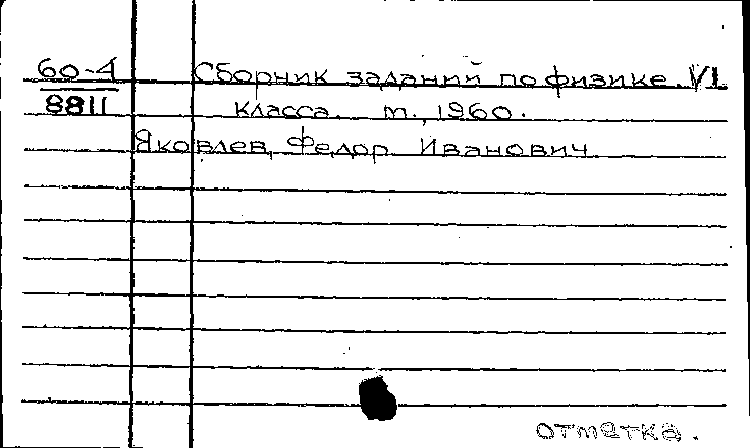 60-4 Сборник заданий по физике. VI
8811 класса. т., 1960.
Яковлев, Федор Иванович
отметка.